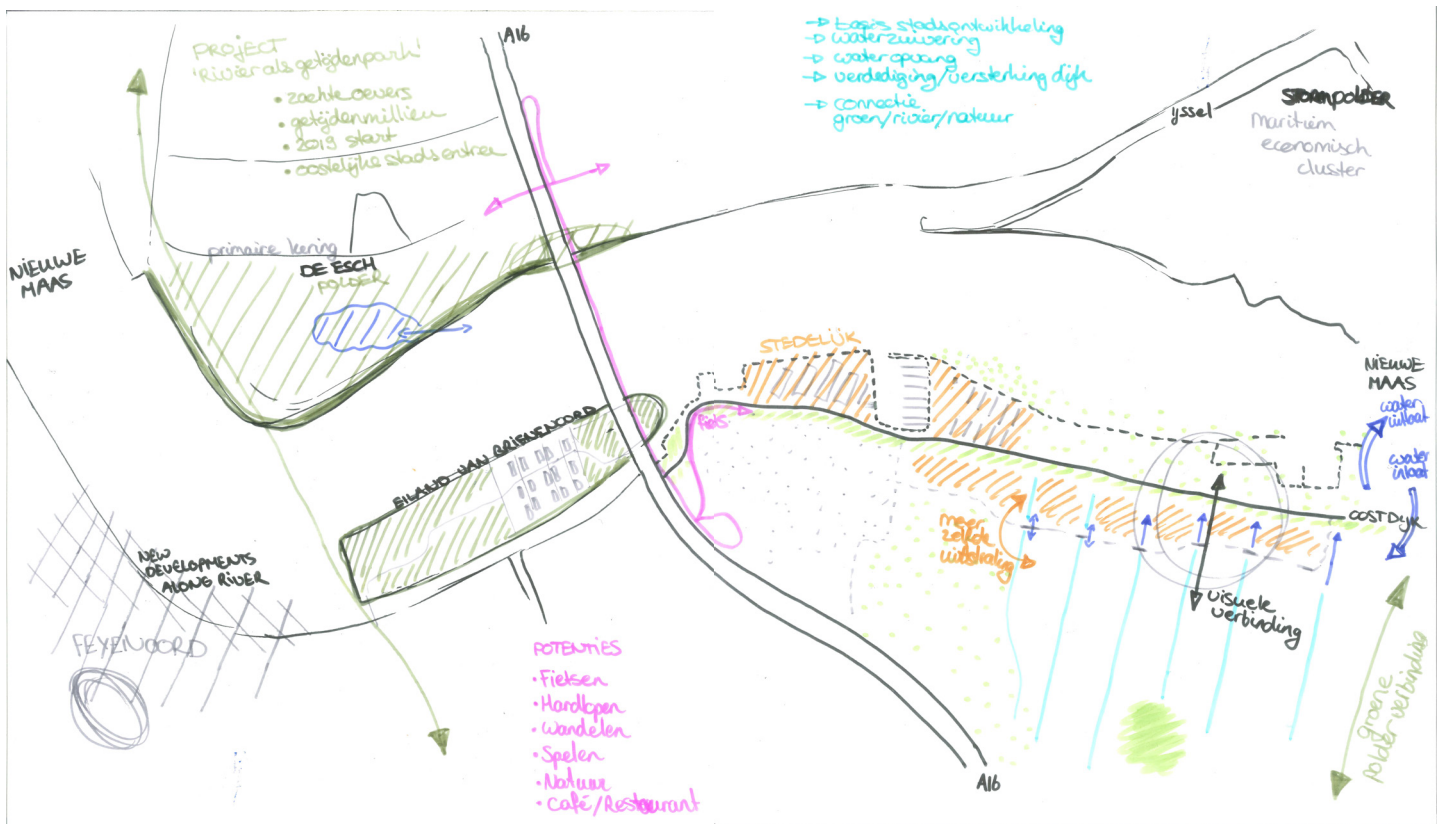 PROJECT
'Rivier als getijdenpark'
• zachte oevers
• getijdenmillieu
• 2019 start
• oostelijke stadsentree
A16
→ basis stadsontwikkeling
→ waterzuivering
→ wateropvang
→ verdediging/versterking dijk
→ connectie
groen/rivier/natuur
ijssel
STORMPOLDER
maritiem
economisch
cluster
NIEUWE
MAAS
primaire kering
DE ESCH
POLDER
STEDELIJK
NIEUWE
MAAS
water
uitlaat
water
inlaat
fiets
EILAND VAN BRIENENOORD
OOSTDIJK
meer
zelfde
uitstraling
visuele
verbinding
NEW
DEVELOPMENTS
ALONG RIVER
FEYENOORD
POTENTIES
• Fietsen
• Hardlopen
• Wandelen
• Spelen
• Natuur
• Café/Restaurant
A16
groene
polderverbinding